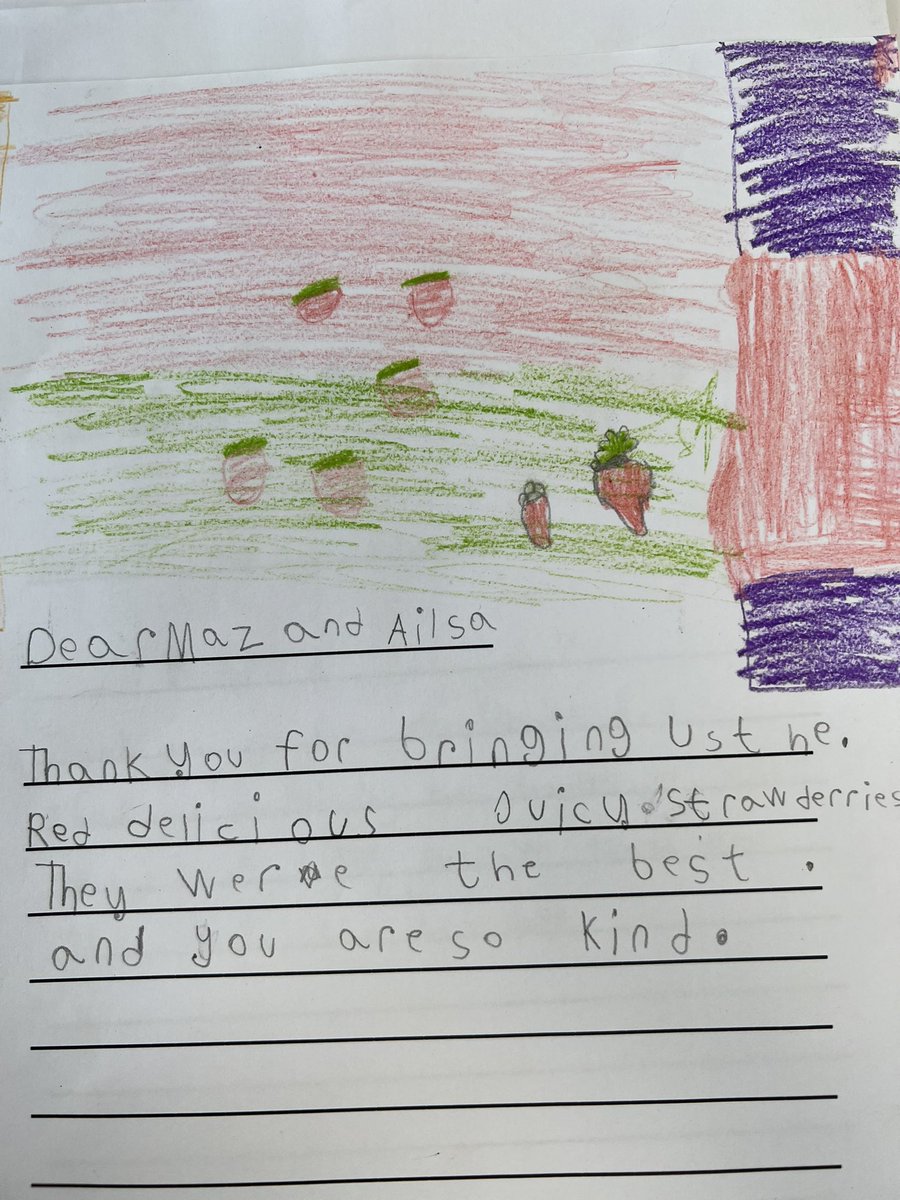 Dear Maz and Ailsa
Thank you for bringing Us the.
Red delicious Juicy. strawderries
They were the best .
and you are so kind.